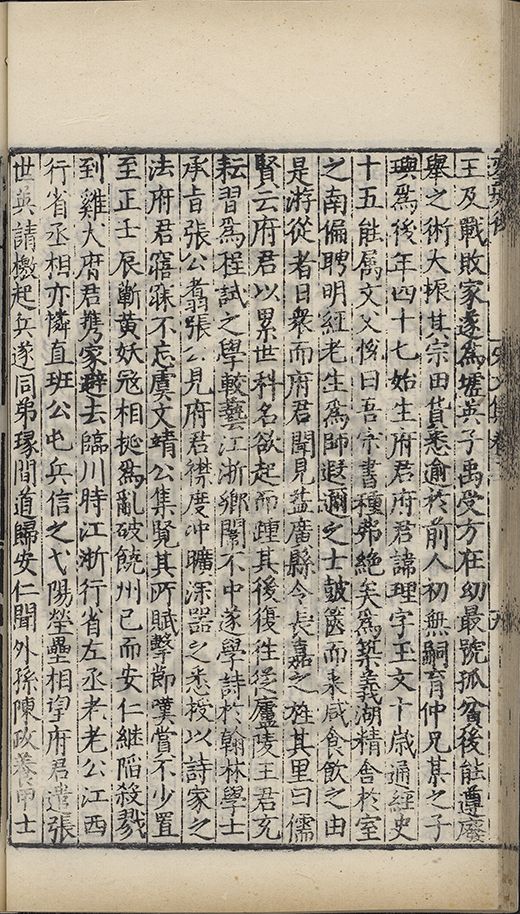 王及戰敗家遂爲墟英子禹受方在幼最號孤貧後能遵廢
舉之術大振其宗田貨悉逾於前人初無嗣育仲兄某之子
璵爲後年四十七始生府君府君諱理字玉文十歲通經史
十五能屬文父悅曰吾宗書種弗絶矣爲築義湖精舍於室
之南偏聘明經老生爲師遐邇之士鼓篋而来咸食飲之由
是游從者日衆而府君聞見益廣縣令長嘉之旌其里曰儒
賢云府君以累世科名欲起而踵其後復徃從廬陵王君充
耘習爲程試之學較藝江浙鄉闈不中遂學詩於翰林學士
承旨張公翥張公見府君襟度冲曠深器之悉授以詩家之
法府君寤寐不忘虞文靖公集覽其所賦擊節嘆賞不少置
至正壬辰蘄黄妖冦相挻爲亂破饒州已而安仁継陷殺戮
到雞犬府君携家避去臨川時江浙行省左丞老老公江西
行省丞相亦憐直班公屯兵信之弋陽壁壘相望府君遣張
世英請檄起兵遂同弟琢間道歸安仁聞外孫陳政養甲士